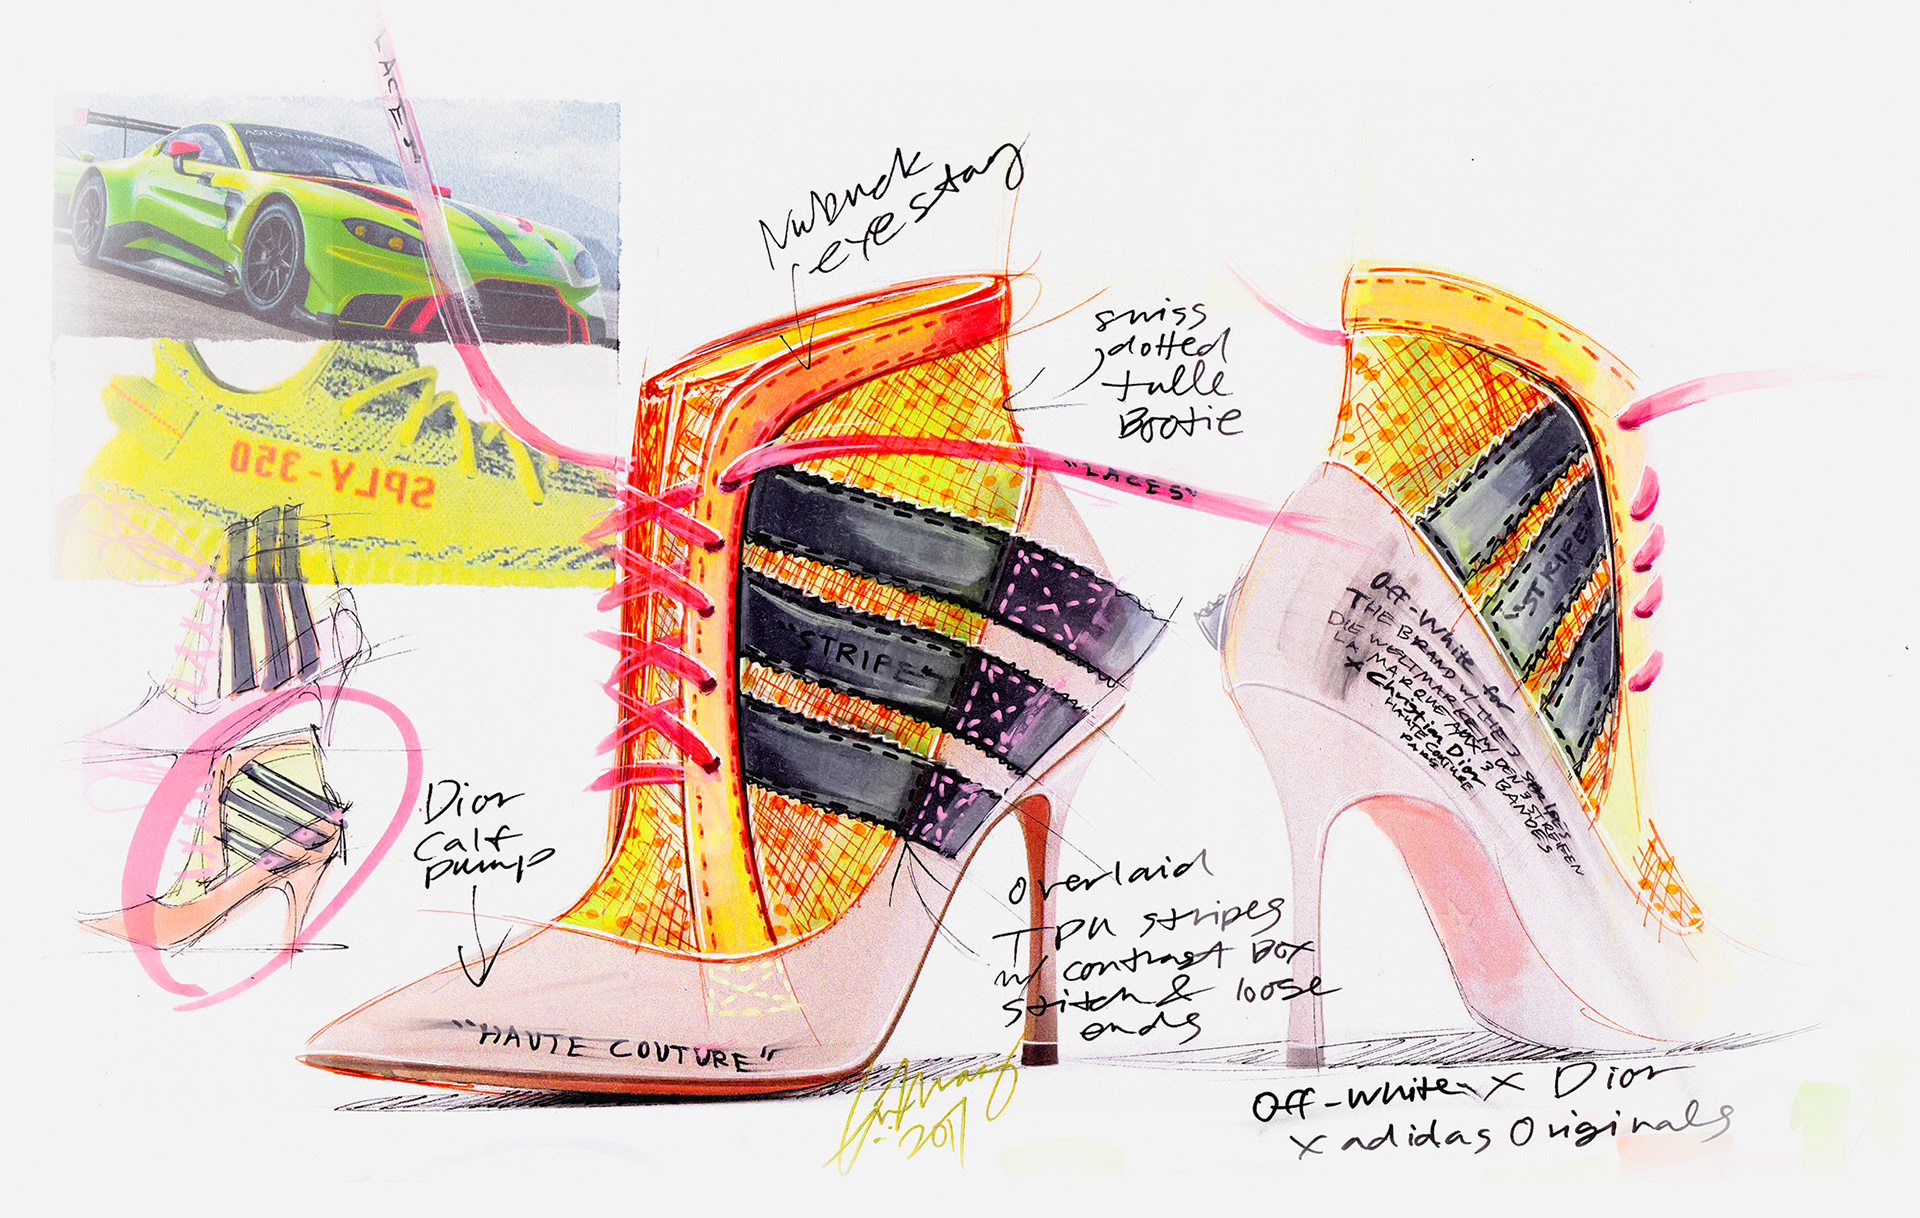 LACES"
ASTON MAR
SPLY-350
Nubuck
eyestay
swiss
dotted
tulle
Bootie
"LACES"
"STRIPE"
"STRIPE"
Off-White for
THE BRAND W/ THE 3 STRIPES
DIE WELTMARKE MIT DEN 3 STREIFEN
LA MARQUE AUX 3 BANDES
X Christian Dior
HAUTE COUTURE
PARIS
Dior
Calf
pump
overlaid
TPU stripes
w/ contrast Box
stitch & loose
ends
"HAUTE COUTURE"
2017
Off-White X Dior
X adidas Originals